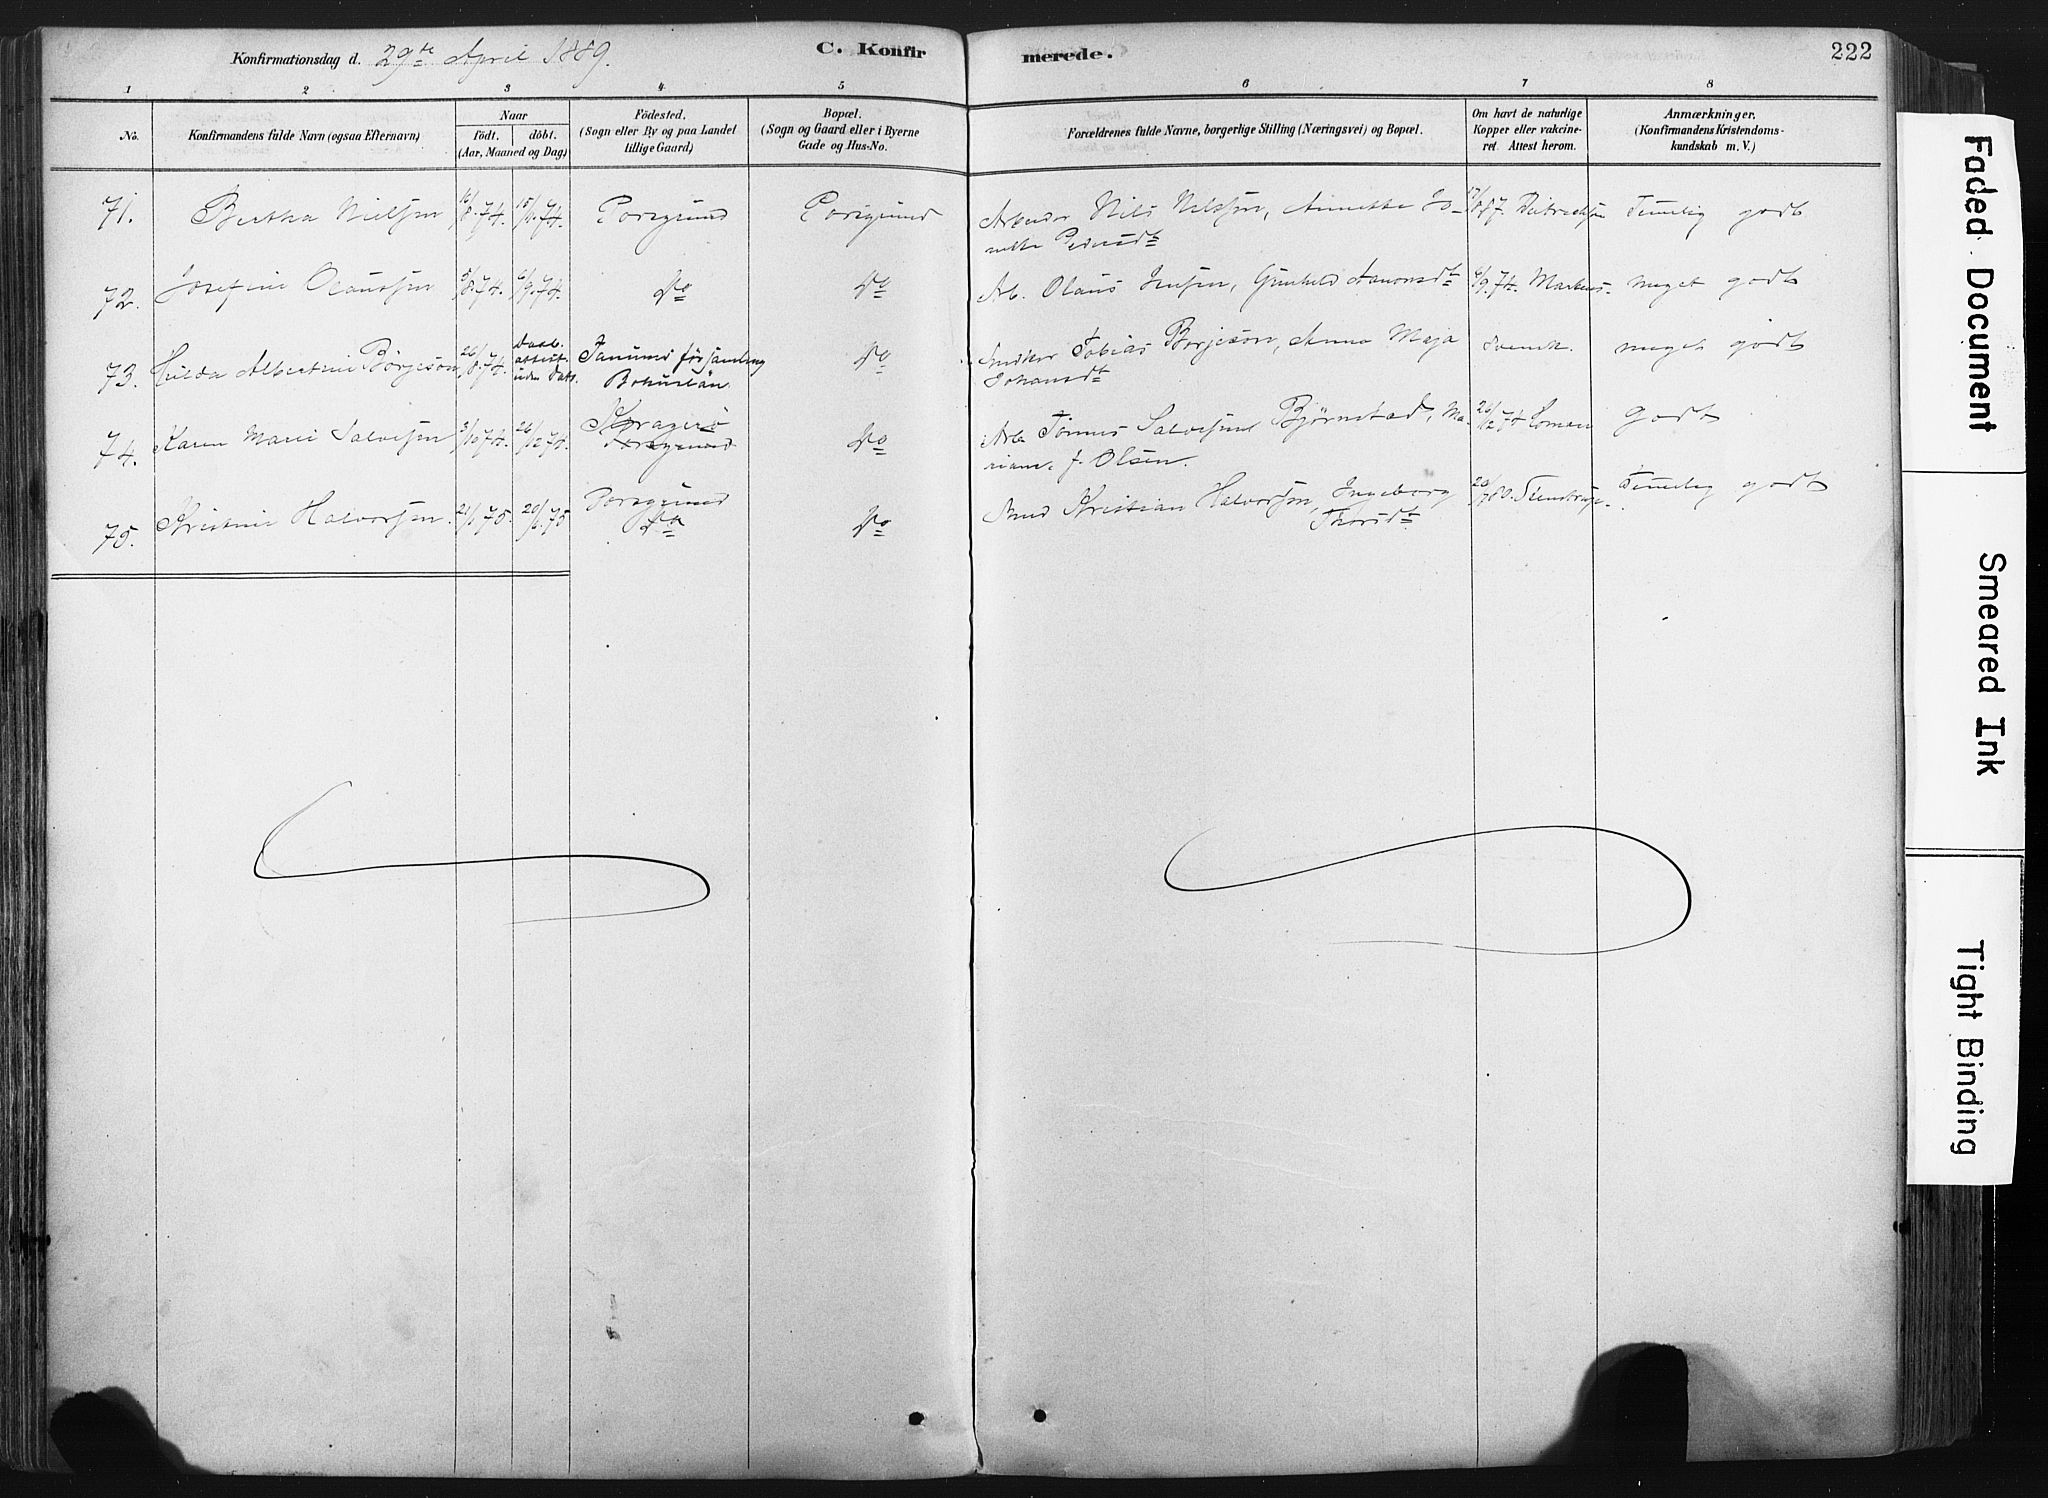 Konfirmationsdag d. 29de April 1889.
C. Konfirmerede.
222
1 2 3 4 5 6 7 8
No.
Konfirmandens fulde Navn (ogsaa Efternavn)
Naar
födt. döbt.
(Aar, Maaned og Dag)
Födested.
(Sogn eller By og paa Landet
tillige Gaard)
Bopæl.
(Sogn og Gaard eller i Byerne
Gade og Hus-No.
Forældrenes fulde Navne, borgerlige Stilling (Næringsvei) og Bopæl.
Om havt de naturlige
Kopper eller vakcine-
ret. Attest herom.
Anmærkninger.
(Konfirmandens Kristendoms-
kundskab m. V.)
71. Bertha Nielsen 16/8 74. 15/11 74. Porsgrund Porsgrund Arbeider Nils Nilssen, Annette Jo-
nette Pedersdt 17/8 87. Temelig godt
72. Josefine Olaussen 5/8 74. 6/9 74. Do Do Arb. Olaus Jensen, Gunhild Aanonsdt 6/9 74. meget godt
73. Hilda Albertine Börjeson 26/8 74. Daab.
attest
uden Dato. Tanums församling
Bohuslän. Do Tobias Borjeson, Anna Maja
Johansdt Svensk. meget godt
74. Karen Marie Salvesen 3/10 74. 26/12 74. Kragerö
Porsgrund Do Arb. Salvesen Björnstad, Ma-
riane f. Olsen. 26/12 74 Loman godt
75. Kristine Halvorsen. 21/1 75. 20/6 75 Porsgrund
Do Do Smed Kristian Halvorsen, Ingeborg
Thorsdt 20/7 80. Stenstrup. Temelig godt
Faded Document
Smeared Ink
Tight Binding